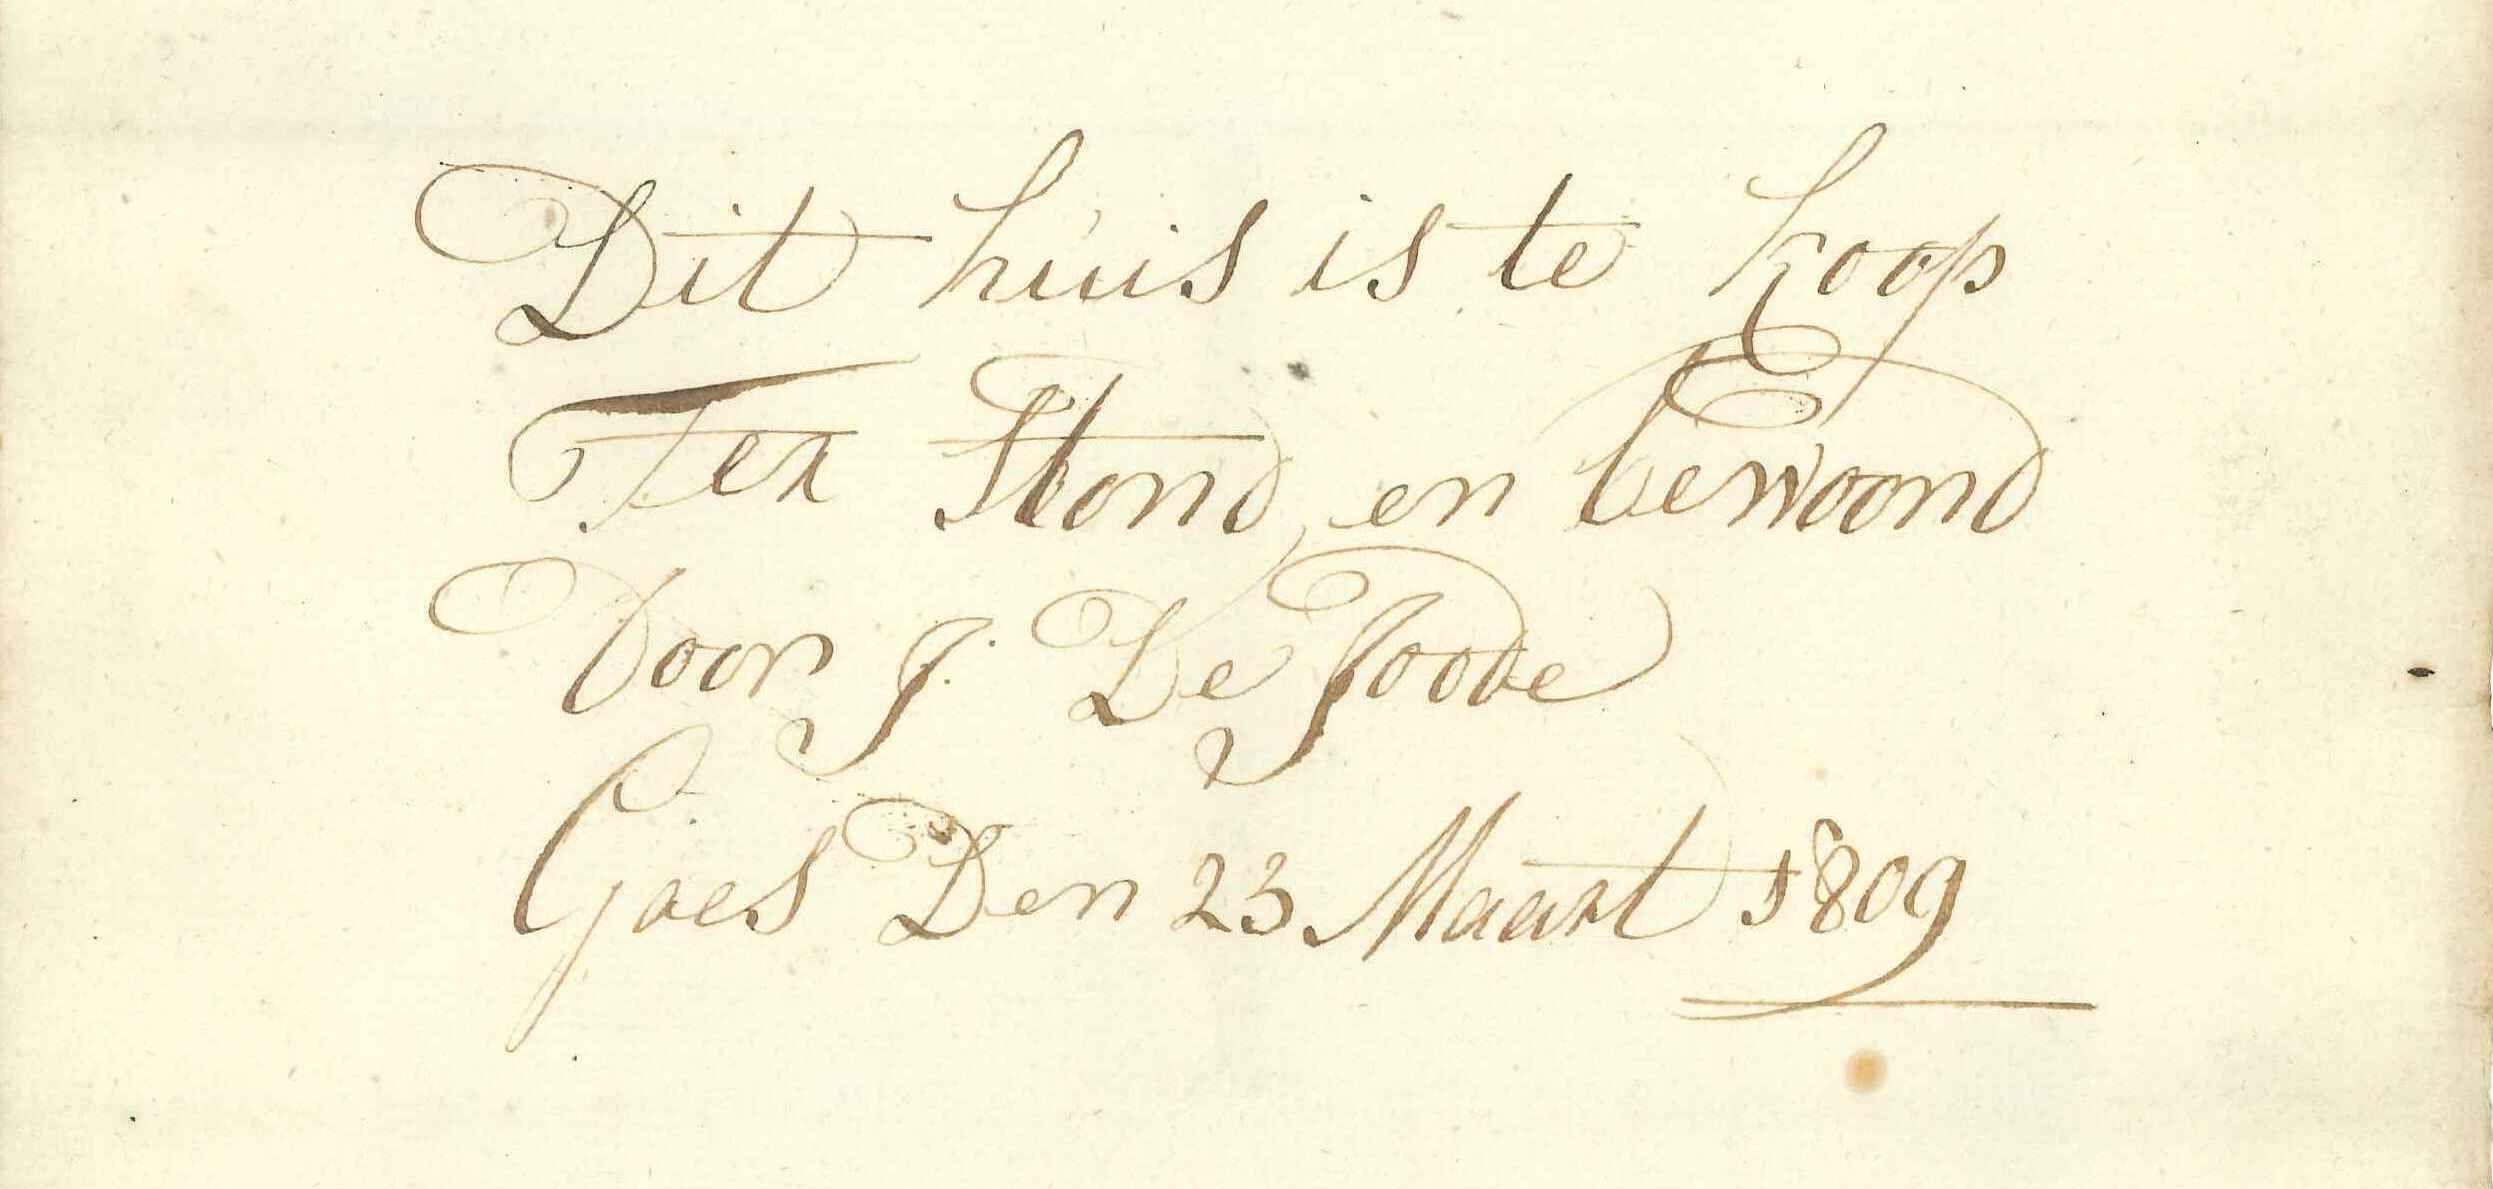 Dit huis is te koop
Ter Stond, en bewoond
Door J: De Joode
Goes Den 23 Maart 1809